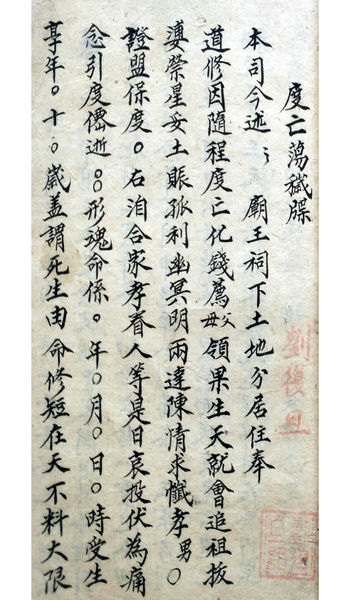 度亡蕩穢牒
本司今述〻 廟王祠下土地分居住奉
道修因隨程度亡化錢薦父母領果生天就會追祖拔
婆榮星妥土賑孤利幽冥明兩達陳情求懺孝男〇
證盟保度。右洎合家孝眷人等是日哀投伏為痛
念引度僊逝〇〇形魂命係〇年〇月〇日〇時受生
享年〇十〇歲蓋謂死生由命修短在天不料大限
劉復旦